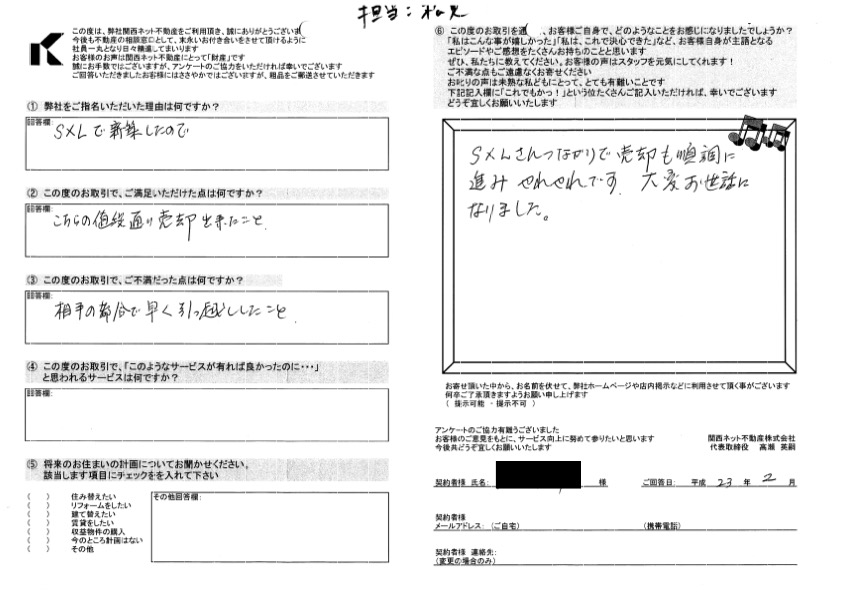 担当：松見
この度は、弊社関西ネット不動産をご利用頂き、誠にありがとうございま
今後も不動産の相談窓口として、末永いお付き合いをさせて頂けるように
社員一丸となり日々精進してまいります
お客様のお声は関西ネット不動産にとって「財産」です
誠にお手数ではございますが、アンケートのご協力をいただければ幸いでございます
ご回答いただきましたお客様にはささやかではございますが、粗品をご郵送させていただきます
① 弊社をご指名いただいた理由は何ですか？
回答欄:
SXLで新築したので
② この度のお取引で、ご満足いただけた点は何ですか？
回答欄:
こちらの値段通り売却出来たこと
③ この度のお取引で、ご不満だった点は何ですか？
回答欄:
相手の都合で早く引っ越ししたこと
④ この度のお取引で、「このようなサービスが有れば良かったのに・・・」
と思われるサービスは何ですか？
回答欄:
⑤ 将来のお住まいの計画についてお聞かせください。
該当します項目にチェックをを入れて下さい
( ) 住み替えたい
( ) リフォームをしたい
( ) 建て替えたい
( ) 賃貸をしたい
( ) 収益物件の購入
( ) 今のところ計画はない
( ) その他
その他回答欄:
⑥ この度のお取引を通 、お客様ご自身で、どのようなことをお感じになりましたでしょうか？
「私はこんな事が嬉しかった」「私は、これで決心できた」など、お客様自身が主語となる
エピソードやご感想をたくさんお持ちのことと思います
ぜひ、私たちに教えてください。お客様の声はスタッフを元気にしてくれます！
ご不満な点もご遠慮なくお寄せください
お叱りの声は未熟な私どもにとって、とても有難いことです
下記記入欄に「これでもかっ！」という位たくさんご記入いただければ、幸いでございます
どうぞ宜しくお願いいたします
SXLさんつながりで売却も順調に
進み やれやれです。大変お世話に
なりました。
お寄せ頂いた中から、お名前を伏せて、弊社ホームページや店内掲示などに利用させて頂く事がございます
何卒ご了承頂きますようお願い申し上げます
（ 提示可能 ・ 提示不可 ）
アンケートのご協力有難うございました
お客様のご意見をもとに、サービス向上に努めて参りたいと思います
今後共どうぞ宜しくお願いいたします
関西ネット不動産株式会社
代表取締役 高瀬 英嗣
契約者様 氏名: 様 ご回答日: 平成 23 年 2 月
契約者様
メールアドレス: （ご自宅） （携帯電話）
契約者様 連絡先:
（変更の場合のみ）